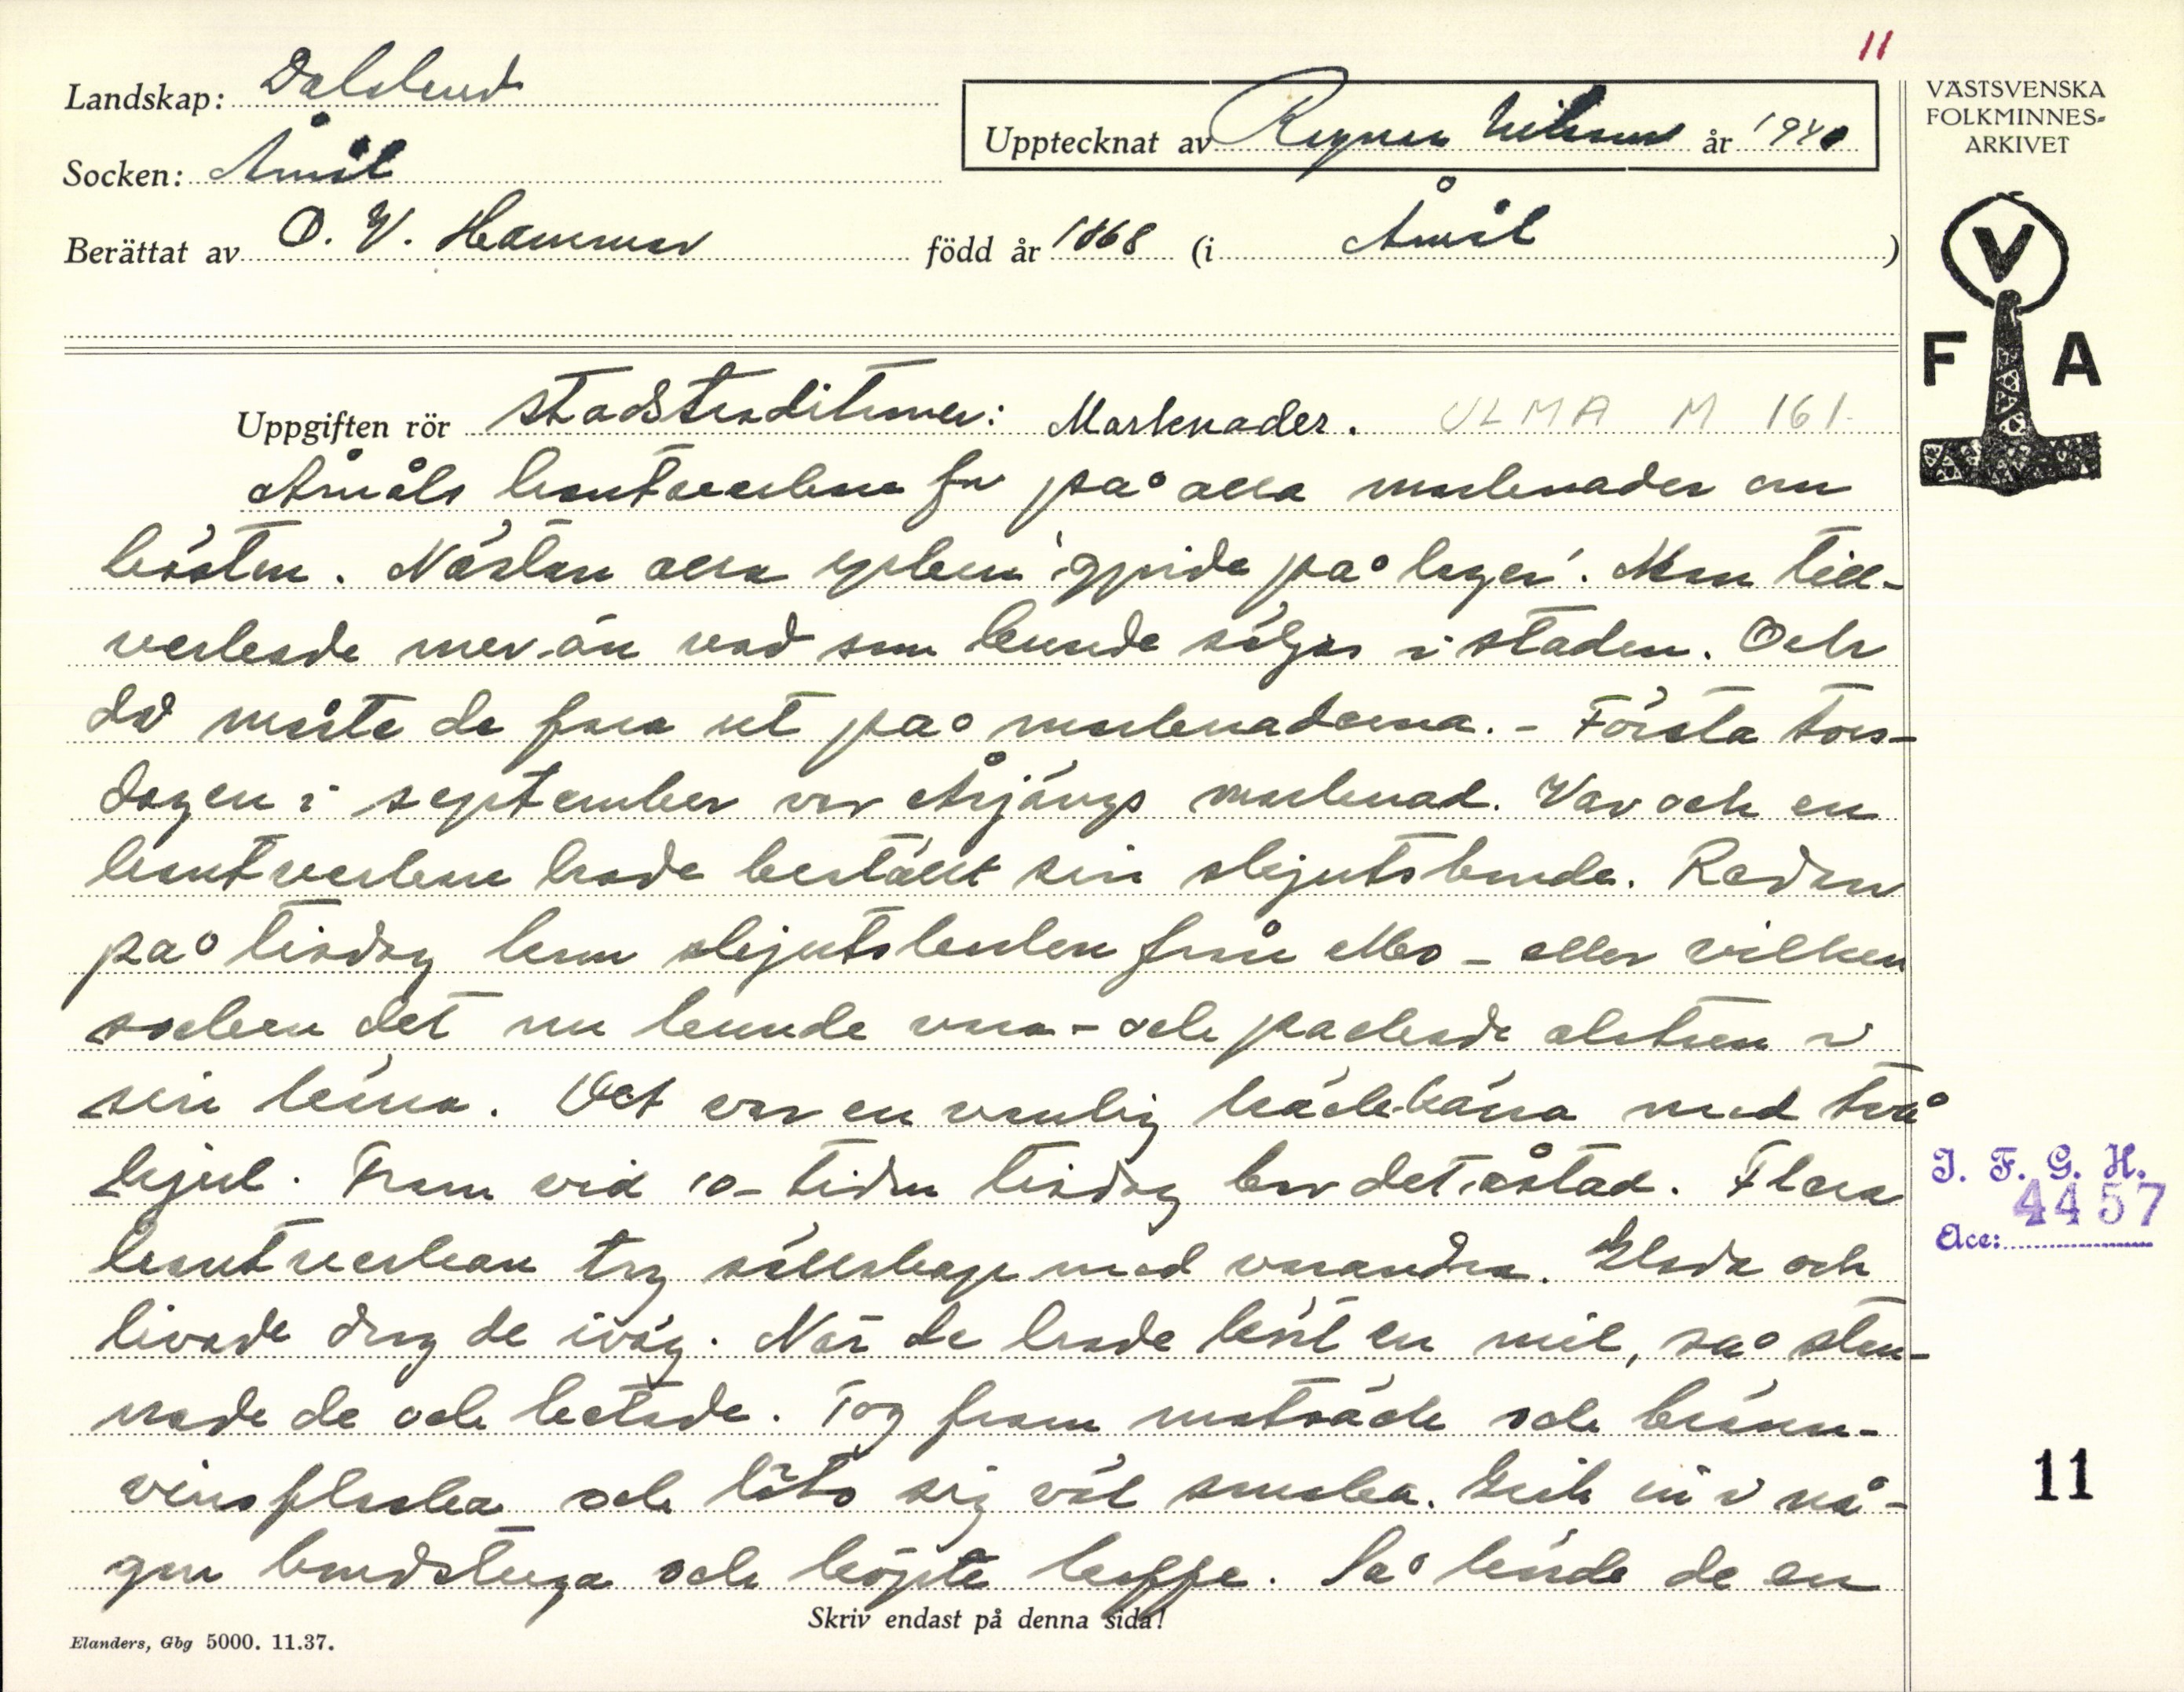 11
Landskap: Dalsland
Upptecknat av Ragnar Nilsson år 1940
VÄSTSVENSKA
FOLKMINNES-
ARKIVET
Socken: Åmål
Berättat av O. V. Hammar född år 1868 (i Åmål)
V
F A
Uppgiften rör stadstraditioner: Marknader. ULMA M 161
Åmåls hantverkare for på alla marknader om
hösten. Nästan alla yrken "gjorde på lager". Man till-
verkade mer än vad som kunde säljas i staden. Och
då måste de fara ut på marknaderna. - Första tors-
dagen i september var Årjängs marknad. Var och en
hantverkare hade beställt sin skjutsbonde. Redan
på tisdag kom skjutskarlen från Mo - eller vilken
socken det nu kunde vara - och packade alstren i
sin kärra. Det var en vanlig häck-kärra med två
hjul. Fram vid 10-tiden tisdag bar det åstad. Flera
hantverkare tog sällskap med varandra. Glada och
livade drog de iväg. När de hade kört en mil, så stan-
nade de och betade. Tog fram matsäck och bränn-
vinsflaska och läto sig väl smaka. Gick in i nå-
gon bondstuga och köpte kaffe. Så körde de en
Skriv endast på denna sida!
Elanders, Gbg 5000. 11.37.
I. F. G. H.
4457
Acc:
11